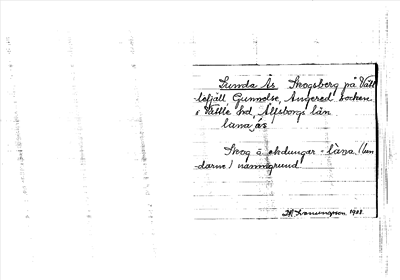 Lunda Ås Skogsberg på Vätt
lefjäll, Gunnilse, Angered socken
i Vättle hd, Älfsborgs län
lana, ås
Skog å ekdungar = lana (lun
darne) namngrund
1908